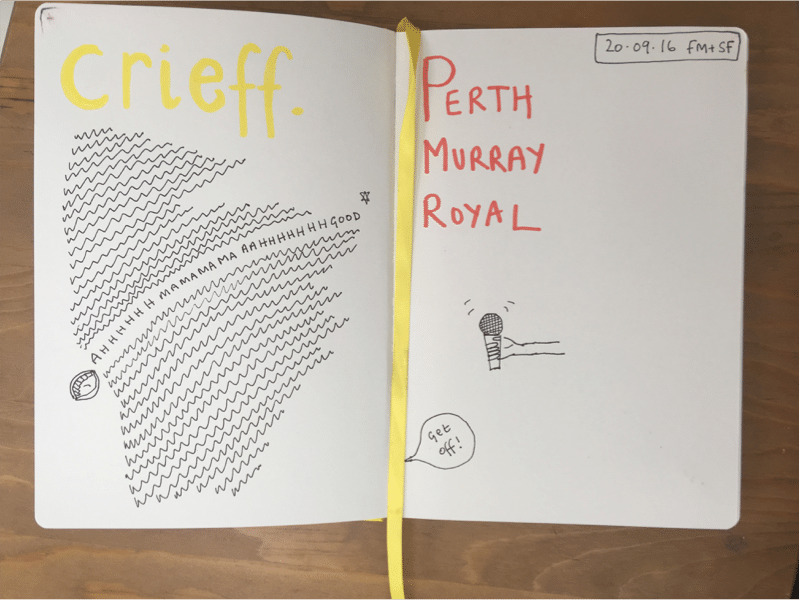 Crieff.
AHHHHHH MAMAMAMA AAHHHHHHH GOOD
20.09.16 FM+SF
PERTH
MURRAY
ROYAL
get
off!